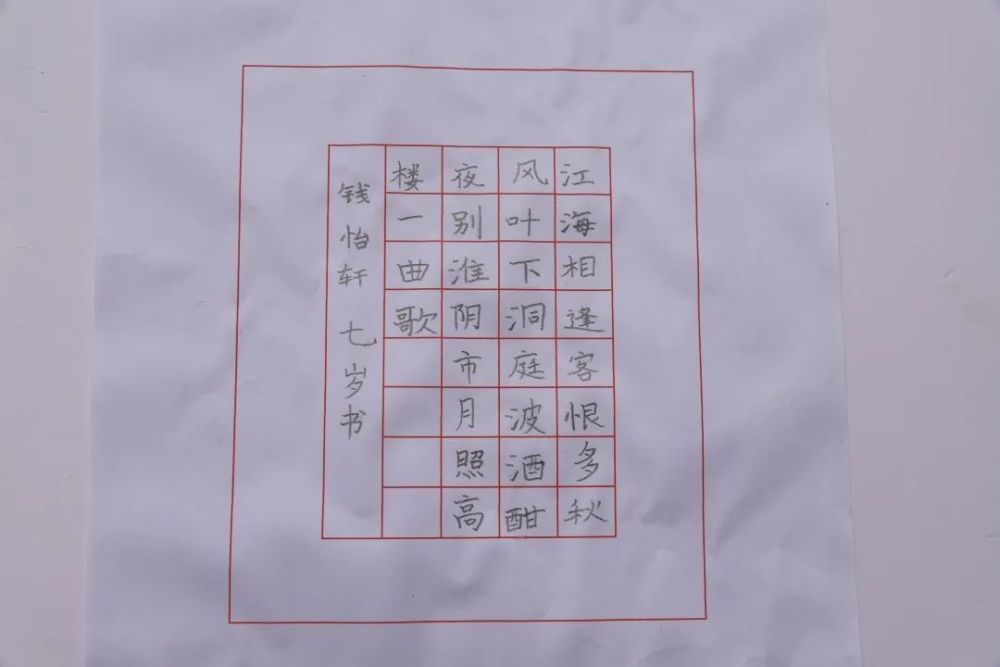 江海相逢客恨多秋
风叶下洞庭波酒酣
夜别淮阴市月照高
楼一曲歌
钱怡轩 七岁书